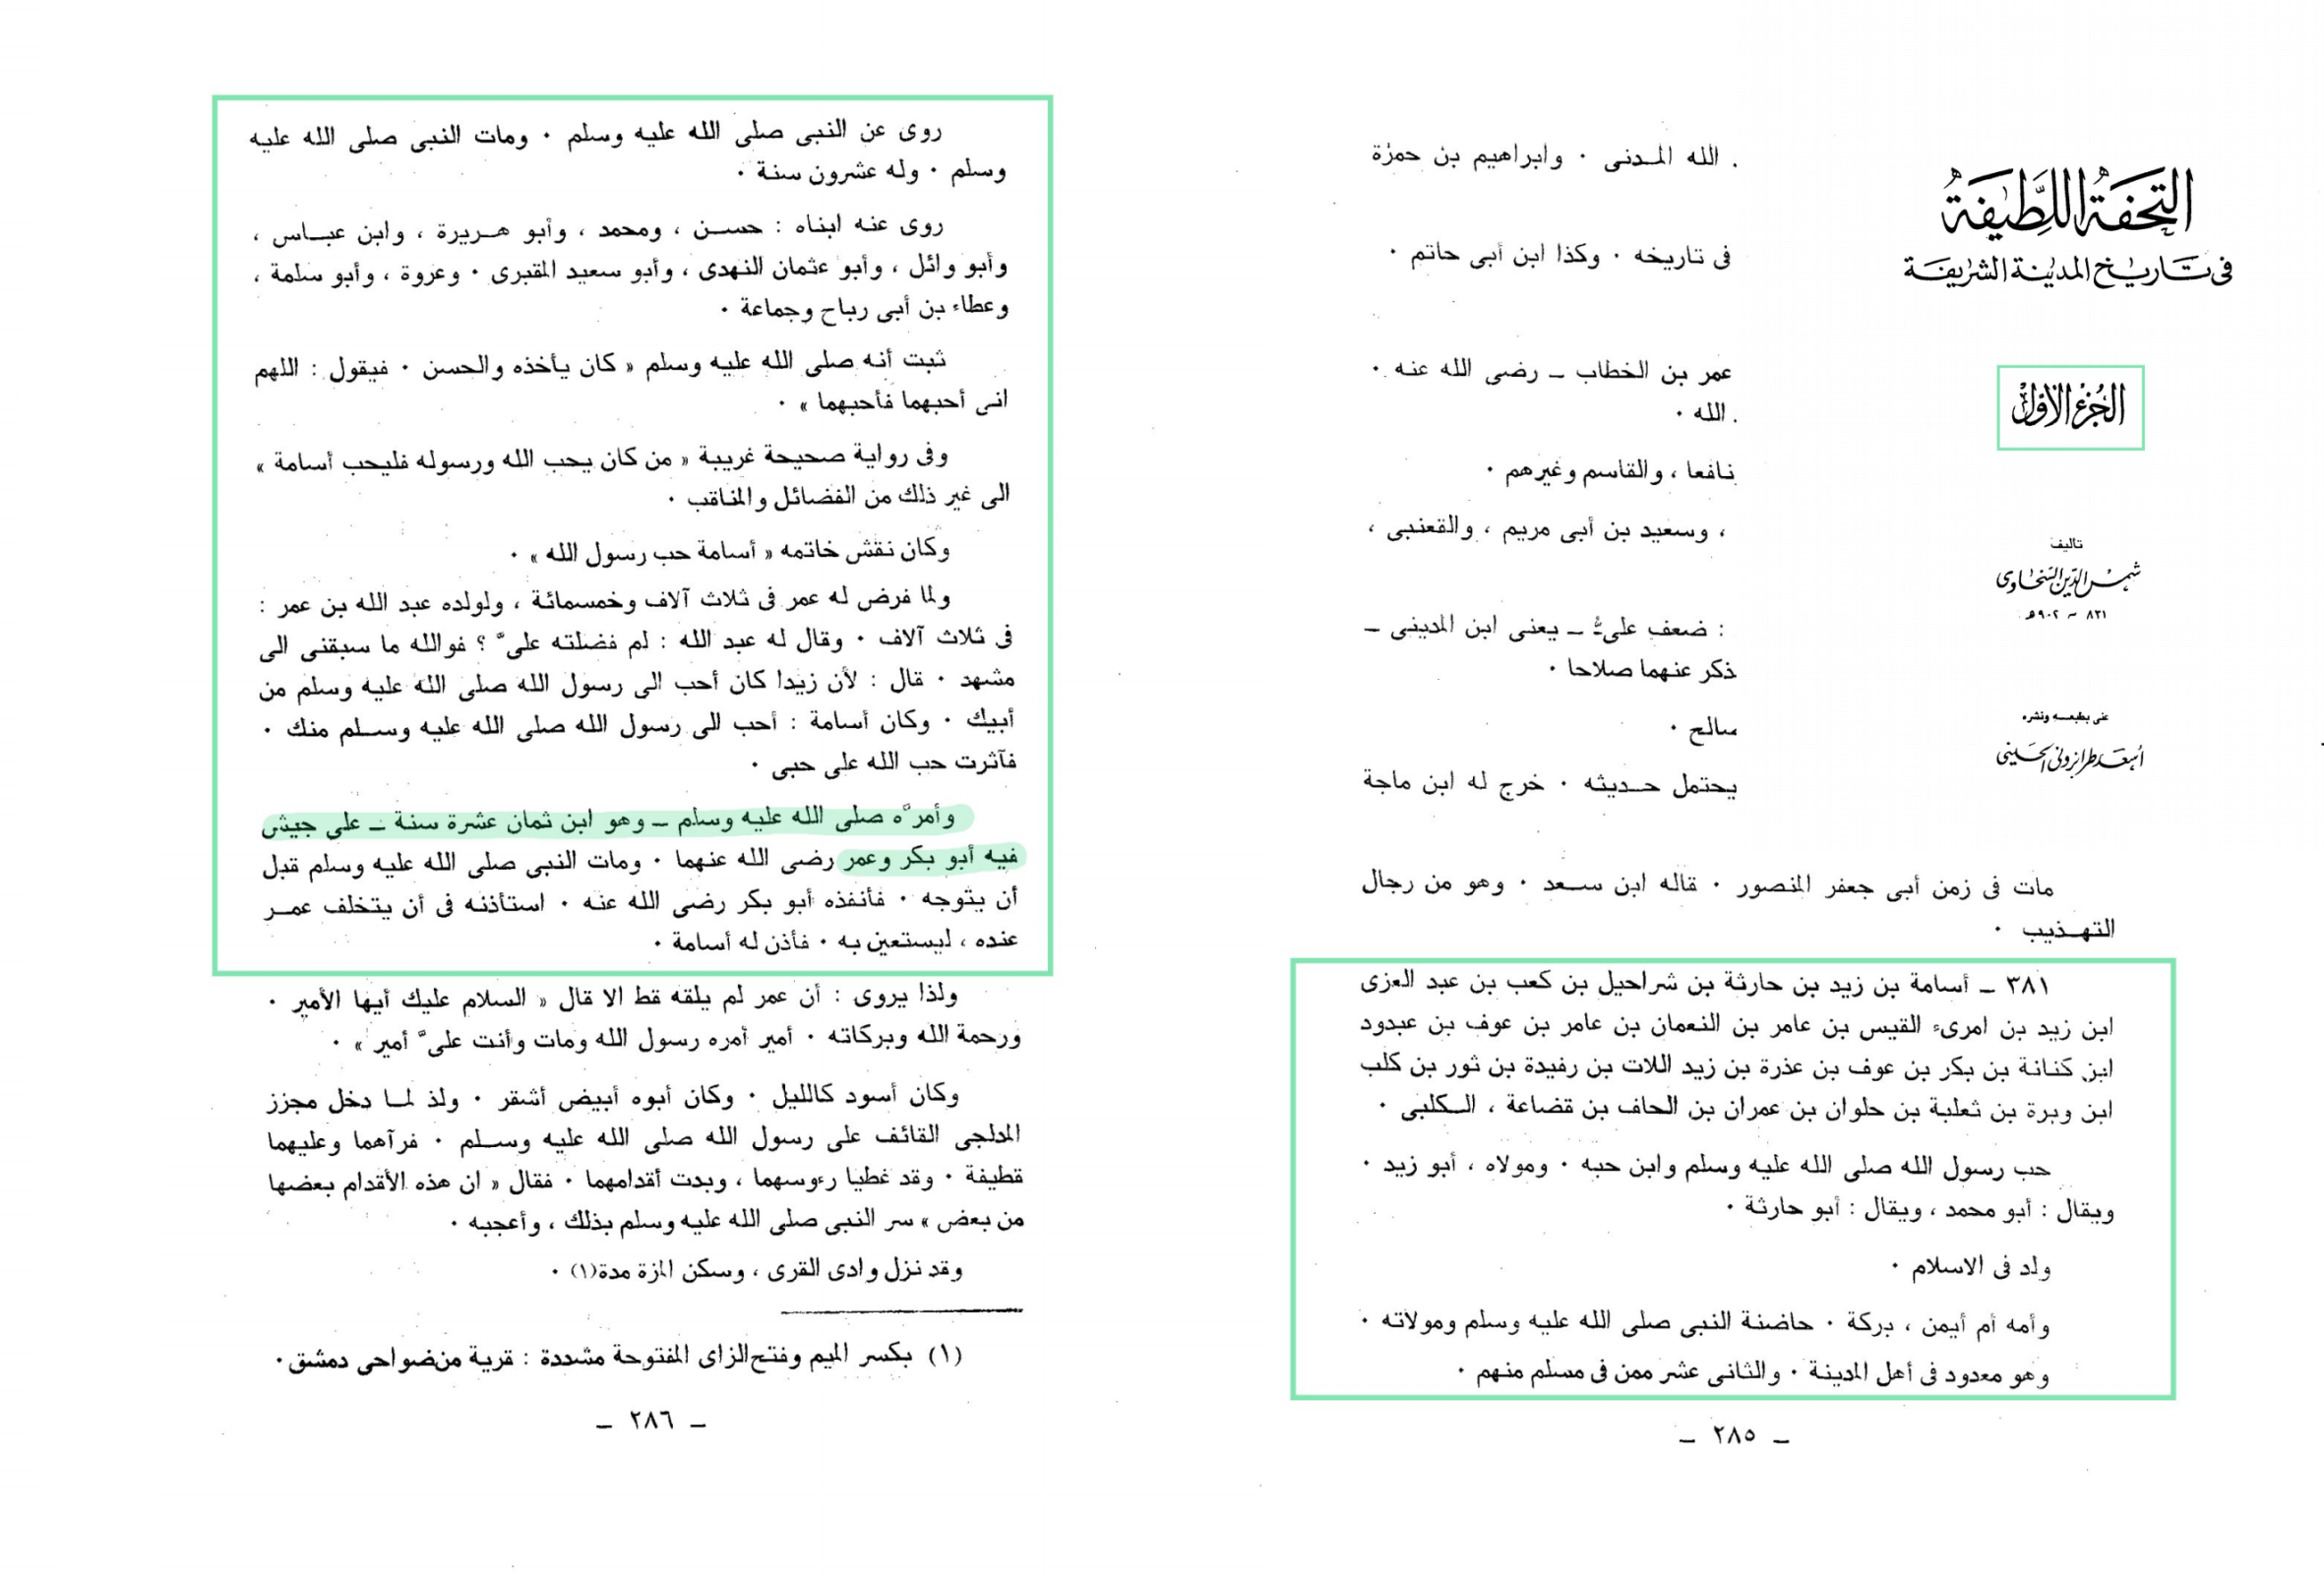 التحفة اللطيفة
فى تاريخ المدينة الشريفة
الجزء الأول
تأليف
شمس الدين السخاوى
٨٣١ ~ ٩٠٢هـ
عنى بطبعه ونشره
أسعد طرابزونى الحسينى
الله المدنى ٠ وابراهيم بن حمزة
فى تاريخه ٠ وكذا ابن أبى حاتم ٠
عمر بن الخطاب ــ رضى الله عنه ٠
الله ٠
نافعا ، والقاسم وغيرهم ٠
، وسعيد بن أبى مريم ، والقعنبى ،
: ضعف علىُّ ــ يعنى ابن المدينى ــ
ذكر عنهما صلاحا ٠
صالح ٠
يحتمل حديثه ٠ خرج له ابن ماجة
مات فى زمن أبى جعفر المنصور ٠ قاله ابن سعد ٠ وهو من رجال
التهذيب ٠
٣٨١ ــ أسامة بن زيد بن حارثة بن شراحيل بن كعب بن عبد العزى
ابن زيد بن امرىء القيس بن عامر بن النعمان بن عامر بن عوف بن عبدود
ابن كنانة بن بكر بن عوف بن عذرة بن زيد اللات بن رفيدة بن ثور بن كلب
ابن وبرة بن ثعلبة بن حلوان بن عمران بن الحاف بن قضاعة ، الكلبى ٠
حب رسول الله صلى الله عليه وسلم وابن حبه ٠ ومولاه ، أبو زيد ٠
ويقال : أبو محمد ، ويقال : أبو حارثة ٠
ولد فى الاسلام ٠
وأمه أم أيمن ، بركة ٠ حاضنة النبى صلى الله عليه وسلم ومولاته ٠
وهو معدود فى أهل المدينة ٠ والثانى عشر ممن فى مسلم منهم ٠
ــ ٢٨٥ ــ
روى عن النبى صلى الله عليه وسلم ٠ ومات النبى صلى الله عليه
وسلم ٠ وله عشرون سنة ٠
روى عنه ابناه : حسن ، ومحمد ، وأبو هريرة ، وابن عباس ،
وأبو وائل ، وأبو عثمان النهدى ، وأبو سعيد المقبرى ٠ وعروة ، وأبو سلمة ،
وعطاء بن أبى رباح وجماعة ٠
ثبت أنه صلى الله عليه وسلم « كان يأخذه والحسن ٠ فيقول : اللهم
انى أحبهما فأحبهما » ٠
وفى رواية صحيحة غريبة « من كان يحب الله ورسوله فليحب أسامة »
الى غير ذلك من الفضائل والمناقب ٠
وكان نقش خاتمه « أسامة حب رسول الله » ٠
ولما فرض له عمر فى ثلاث آلاف وخمسمائة ، ولولده عبد الله بن عمر :
فى ثلاث آلاف ٠ وقال له عبد الله : لم فضلته علىَّ ؟ فوالله ما سبقنى الى
مشهد ٠ قال : لأن زيدا كان أحب الى رسول الله صلى الله عليه وسلم من
أبيك ٠ وكان أسامة : أحب الى رسول الله صلى الله عليه وسلم منك ٠
فآثرت حب الله على حبى ٠
وأمرَّه صلى الله عليه وسلم ــ وهو ابن ثمان عشرة سنة ــ على جيش
فيه أبو بكر وعمر رضى الله عنهما ٠ ومات النبى صلى الله عليه وسلم قبل
أن يتوجه ٠ فأنفذه أبو بكر رضى الله عنه ٠ استأذنه فى أن يتخلف عمر
عنده ، ليستعين به ٠ فأذن له أسامة ٠
ولذا يروى : أن عمر لم يلقه قط الا قال « السلام عليك أيها الأمير ٠
ورحمة الله وبركاته ٠ أمير أمره رسول الله ومات وأنت علىَّ أمير » ٠
وكان أسود كالليل ٠ وكان أبوه أبيض أشقر ٠ ولذ لما دخل مجزز
المدلجى القائف على رسول الله صلى الله عليه وسلم ٠ فرآهما وعليهما
قطيفة ٠ وقد غطيا رءوسهما ، وبدت أقدامهما ٠ فقال « ان هذه الأقدام بعضها
من بعض » سر النبى صلى الله عليه وسلم بذلك ، وأعجبه ٠
وقد نزل وادى القرى ، وسكن المزة مدة(١) ٠
(١) بكسر الميم وفتح الزاى المفتوحة مشددة : قرية من ضواحى دمشق ٠
ــ ٢٨٦ ــ